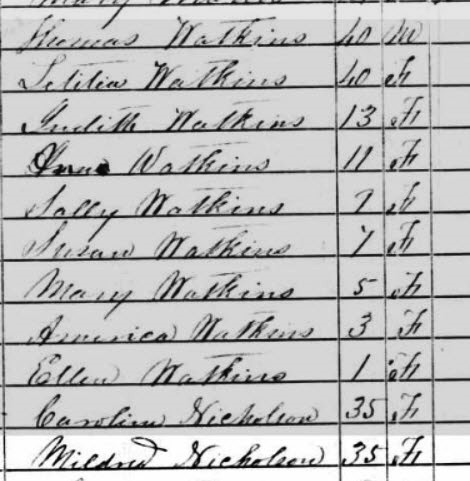 Thomas Watkins 40 M
Letitia Watkins 40 F
Judith Watkins 13 F
Watkins 11 F
Sally Watkins 7 F
Susan Watkins 7 F
Mary Watkins 5 F
America Watkins 3 F
Ellen Watkins 1 F
Caroline Nicholson 35 F
Mildred Nicholson 35 F